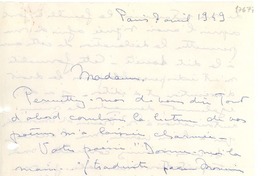 Paris 7 avril 1949
Madame,
Permettez-moi de vous dire tout
d'abord combien la lecture de vos
poèmes m'a laissée charmée.
Votre poème "Donne-moi la
main" (traduite par